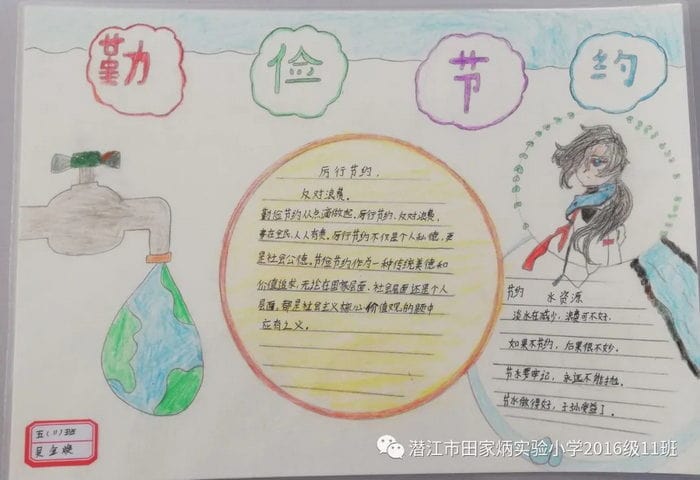 勤俭节约
厉行节约，
反对浪费。
勤俭节约从点滴做起。厉行节约，反对浪费，
事在全民，人人有责。厉行节约不仅是个人私德，更
是社会公德。节俭节约作为一种传统美德和
价值追求，无论在国家层面、社会层面还是个人
层面，都是社会主义核心价值观的题中
应有之义。
节约
水资源
淡水在减少，浪费可不好。
如果不节约，后果很不妙。
节水要牢记，永远不能忘。
节水做得好，子孙受益了。
五（11）班
吴
潜江市田家炳实验小学2016级11班